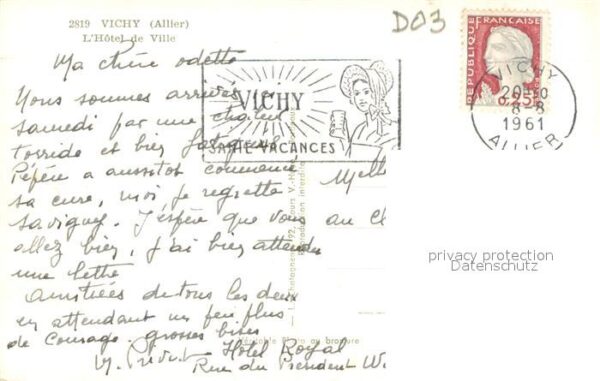 2819 VICHY (Allier)
L'Hôtel de Ville
D03
RÉPUBLIQUE FRANÇAISE
0,25F
VICHY
20H50
8-8
1961
ALLIER
VICHY
SANTE-VACANCES
Ma chère odette
Nous sommes arrivés
samedi par une chaleur
torride et bien fatigués
Pépée a aussitot commencé
sa cure, moi, je regrette
Savigny. J'espère que vous
allez bien, j'ai bien attendu
une lettre
amitiées de tous les deux
en attendant un peu plus
de courage. grosses bises
Hôtel Royal
Rue du Président W
Melle
au Ch
Véritable Photo au bromure
Reproduction interdite
privacy protection
Datenschutz